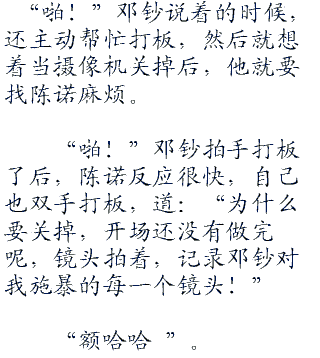 “啪！”邓钞说着的时候，
还主动帮忙打板，然后就想
着当摄像机关掉后，他就要
找陈诺麻烦。
“啪！”邓钞拍手打板
了后，陈诺反应很快，自己
也双手打板，道：“为什么
要关掉，开场还没有做完
呢，镜头拍着，记录邓钞对
我施暴的每一个镜头！”
“额哈哈 ”。